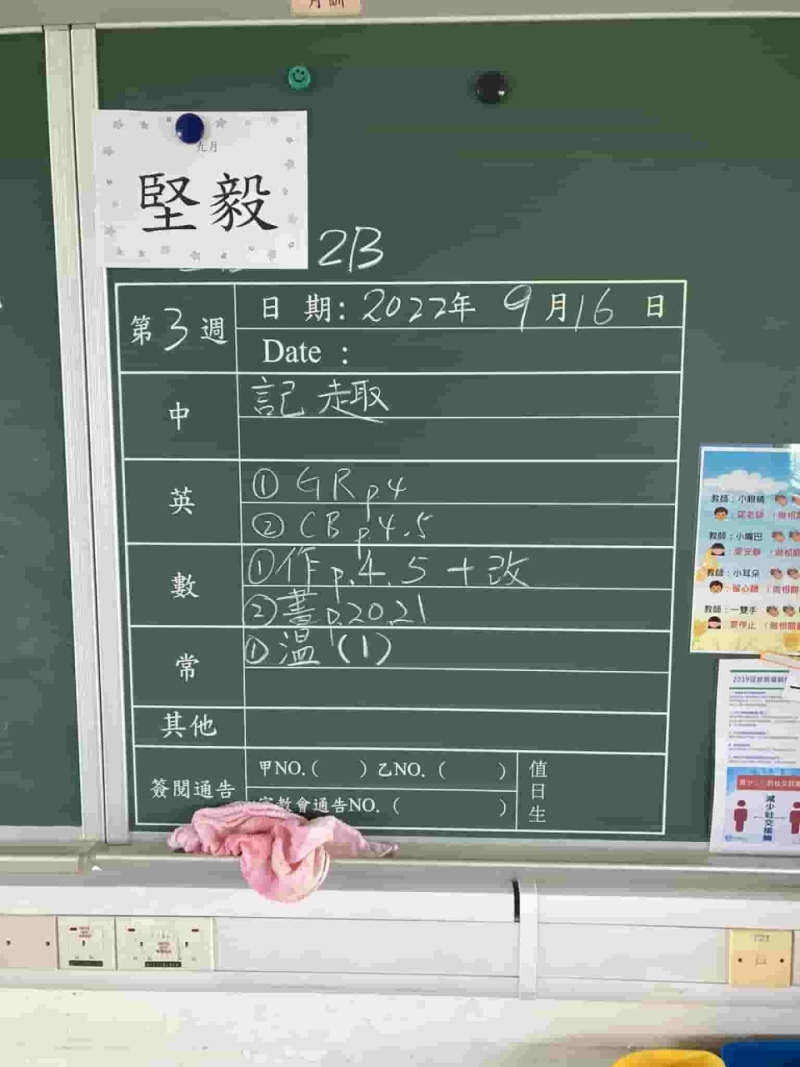 九月
堅毅
2B
第3週
日 期: 2022年 9月16日
Date :
中
記 趣取
英
① GR p4
② CB p.4.5
數
①作p.4.5+改
②書p.20.21
常
①溫(1)
其他
簽閱通告
甲NO.( ) 乙NO.( )
家教會通告NO.( )
值日生
教師:小眼睛
望老師
教師:小嘴巴
要安靜
教師:小耳朵
留心聽
教師:一雙手
要停止
減少社交接觸